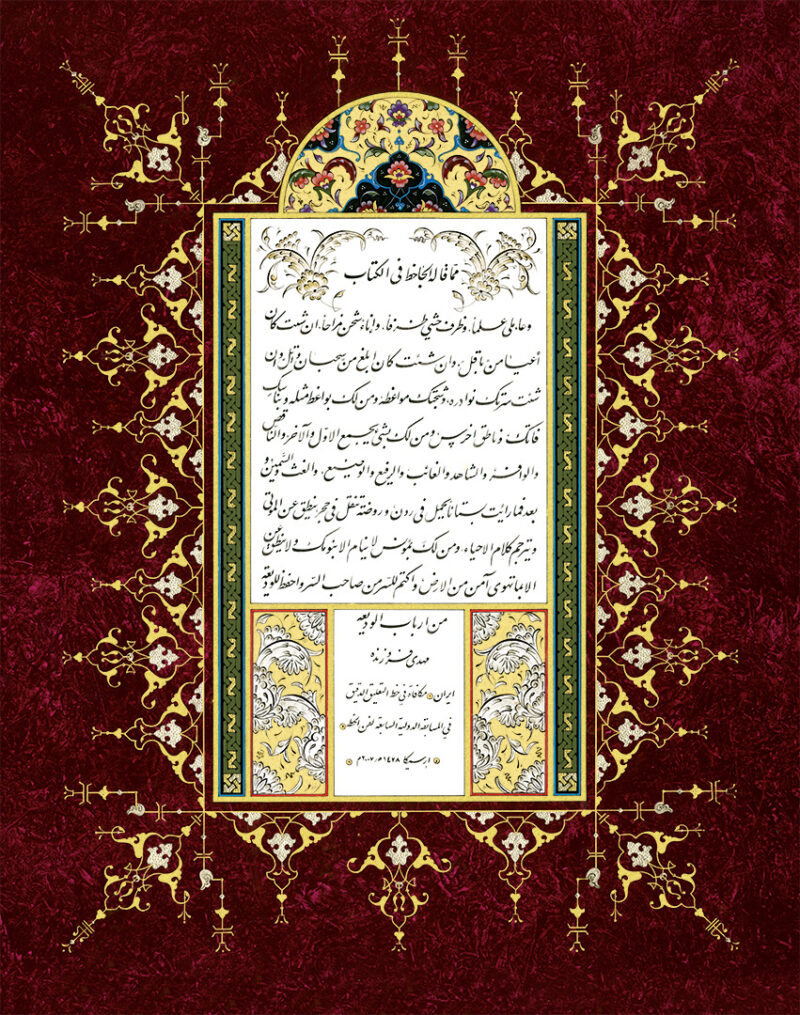 مما قاله الجاحظ في الكتاب
وعاء ملئ علماً، وظرف حشي ظرفاً، وإناء شحن مزاحاً، ان شئت كان
أعيا من باقل، وان شئت كان ابلغ من سحبان وائل، وان
شئت سرتك نوادره، وشجتك مواعظه ومن لك بواعظ مثله وبناسك
فاتك وناطق اخرس ومن لك بشئ يجمع الاول والآخر والناقص
والوافر والشاهد والغائب والرفيع والوضيع، والغث والسمين
بعد فما رايت بستاناً يحمل في ردن وروضة تنقل في حجر ينطق عن الموتى
ويترجم كلام الاحياء، ومن لك بمؤنس لا ينام الا بنومك ولا ينطق
الا بما تهوى آمن من الارض واكتم للسر من صاحب السر واحفظ للوديعة
من ارباب الوديعة
مهدي فروزنده
ايران مكافاة في خط التعليق الدقيق
في المسابقة الدولية السابعة لفن الخط
ارسيكا ١٤٢٨ه/٢٠٠٧م